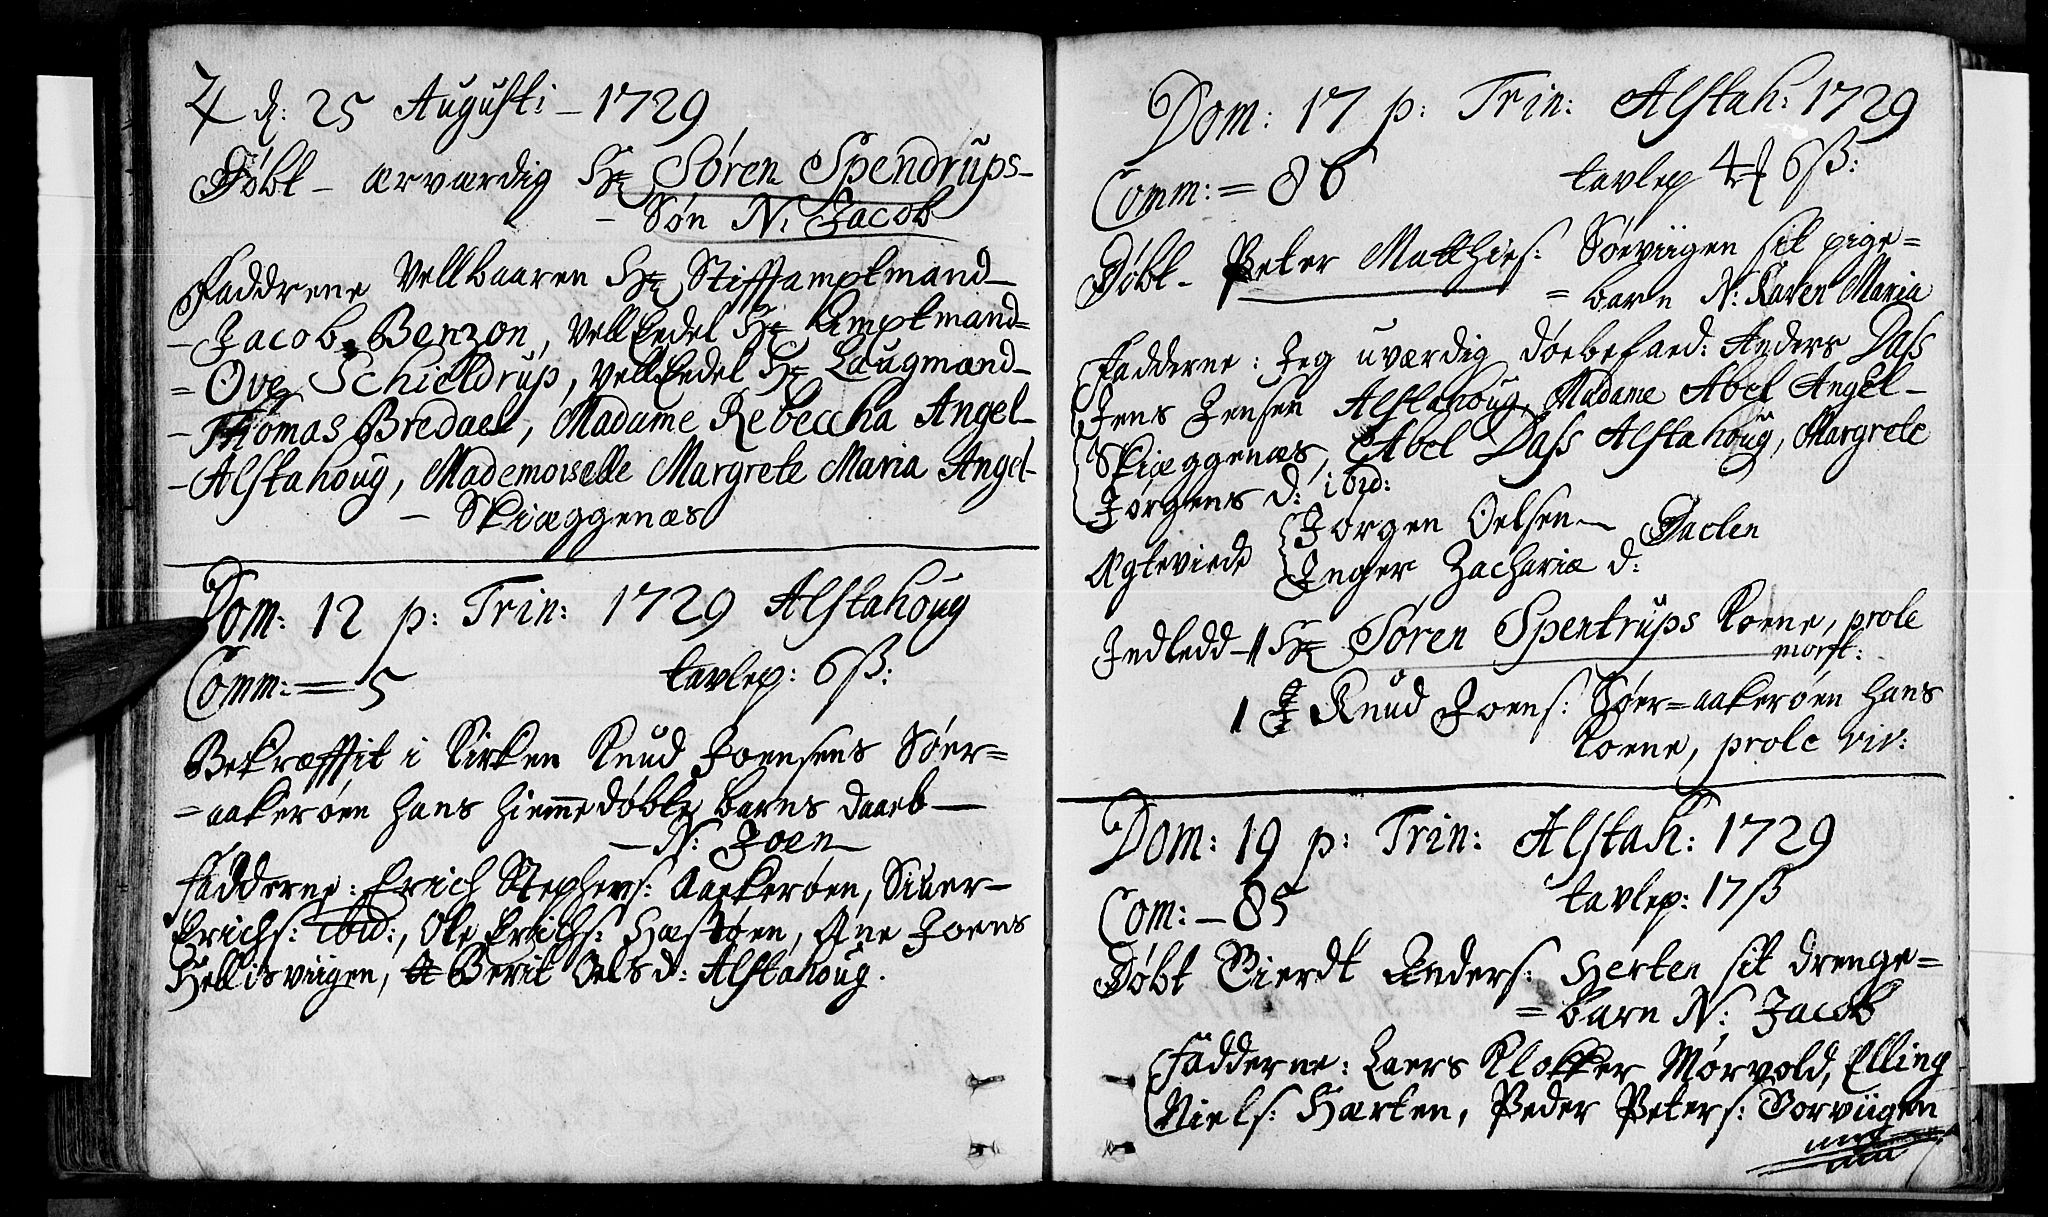 ♃ d: 25 Augusti – 1729
Døbt – ærværdig Hr Søren Spendrups –
– Søn N: Jacob
Faddrene Vellbaaren Hr Stifftamptmand –
– Jacob Benzon, Vell Eedel Hr Amptmand =
= Ove Schieldrup, Vell Eedel Hr Laugmand –
– Thomas Bredael, Madame Rebeccha Angel –
– Alstahoug, Mademoiselle Margrete Maria Angel –
– Skiæggenæs
Dom: 12 p: Trin: 1729 Alstahoug
Comm: = 5 tavlep: 6 ß:
Bekræfftit i Kirken Knud Joensens Søer =
= aakerøen hans hiemme døbte barns daaeb –
– N: Joen –
Fadderne: Erich Stephens: Aakerøen, Siuer –
Erichs: ibid:, Ole Erichs: Hæstøen, Ane Joens
Hellisviigen, Berit Oels d: Alstahoug.
Dom: 17 p: Trin: Alstah: 1729
Comm: = 86 tavlep 4 6 ß:
Døbt – Peter Matthies: Søeviigen sit pige =
= barn N: Karen Maria
Fadderne: Jeg uværdig Anders Dass
Jens Jensen Alstahoug, Madame Abel Angel –
Skiæggenæs, Abel Dass Alstahoug, Margrete
Jørgens d: ibid:
Ægteviede Jørgen Oelsen –
Inger Zachariæ d:
Indledd – 1 Hr Søren Spentrups Koene, prole
mort:
1 Knud Joens: Søer = aakerøen hans
Koene, prole viv:
Dom: 19 p: Trin: Alstah: 1729
Com: – 85 tavlep: 17 ß
Døbt Sierdt Anders: Herten sit drenge =
= barn N: Jacob
Fadderne: Laers Klokker Mørvold, Elling
Niels: Hærten, Peder Peters: Torviigen